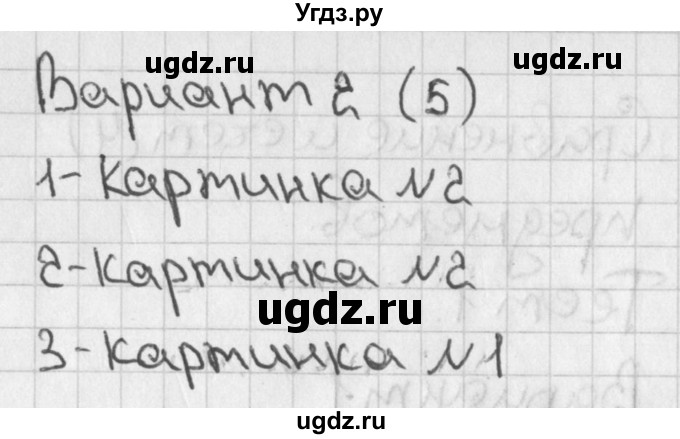 Угдз.ру
ugdz.ru
ugdz.ru
Вариант 2 (5)
ugdz.ru
1-Картинка №2
ugdz.ru
2-картинка №2
ugdz.ru
3-картинка №1
ugdz.ru